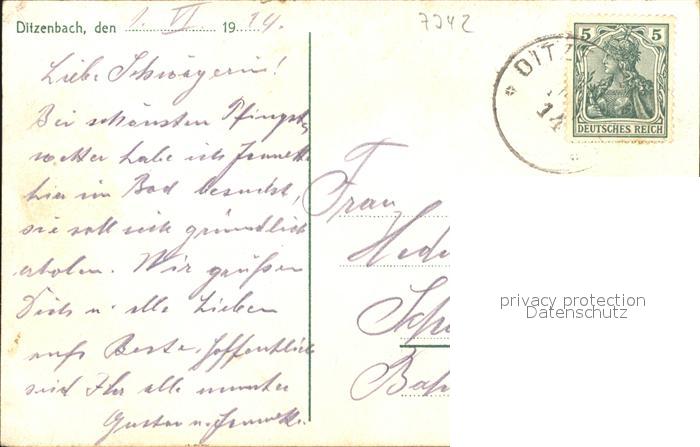 Ditzenbach, den 1. VI. 1914.
7242
Liebe Schwägerin!
Bei schönsten Pfingst-
wetter habe ich
hier im Bad besucht,
sie soll sich gründlich
erholen. Wir grüßen
Dich u. alle Lieben
aufs Beste. Hoffentlich
seid Ihr alle munter
Gustav u.
DITZ
5 5
DEUTSCHES REICH
Frau
Hede
privacy protection
Datenschutz